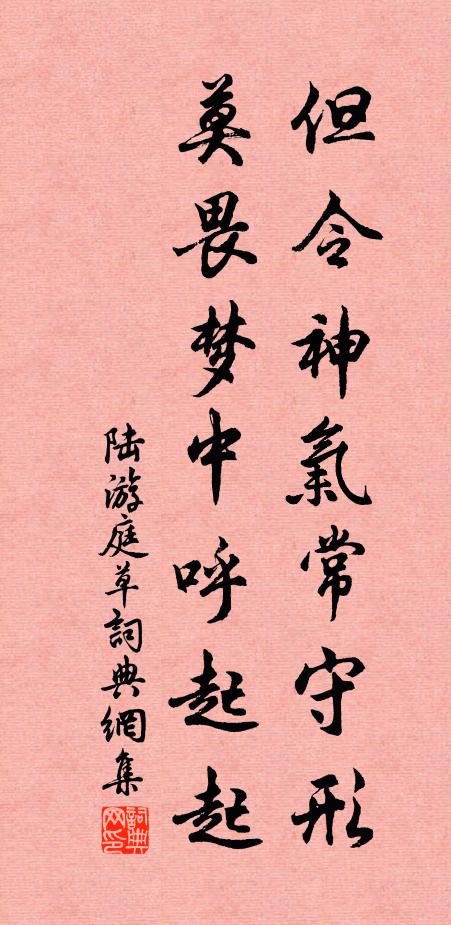 但令神氣常守形
莫畏梦中呼起起
陆游庭草詞典網集
詞典网印